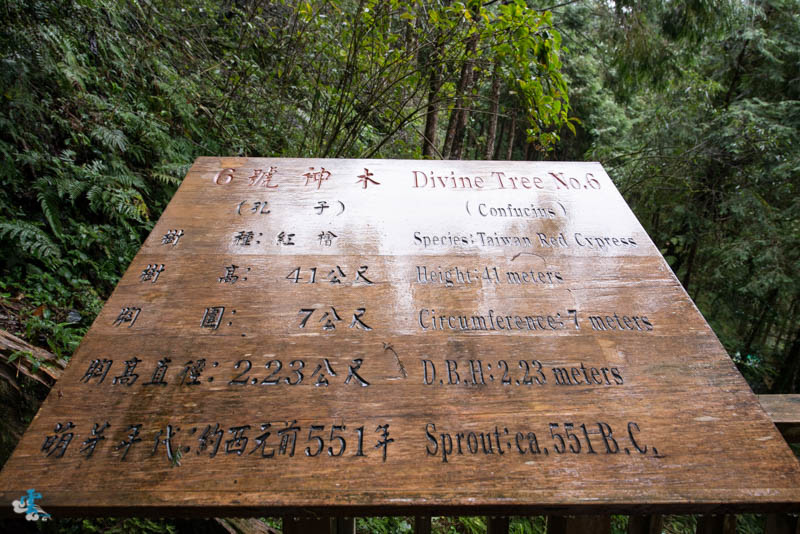 6號神木 Divine Tree No.6
(孔子) (Confucius)
樹種:紅檜 Species:Taiwan Red Cypress
樹高: 41公尺 Height:41 meters
胸圍: 7公尺 Circumference:7 meters
胸高直徑:2.23公尺 D.B.H:2.23 meters
萌芽年代:約西元前551年 Sprout:ca.551B.C.